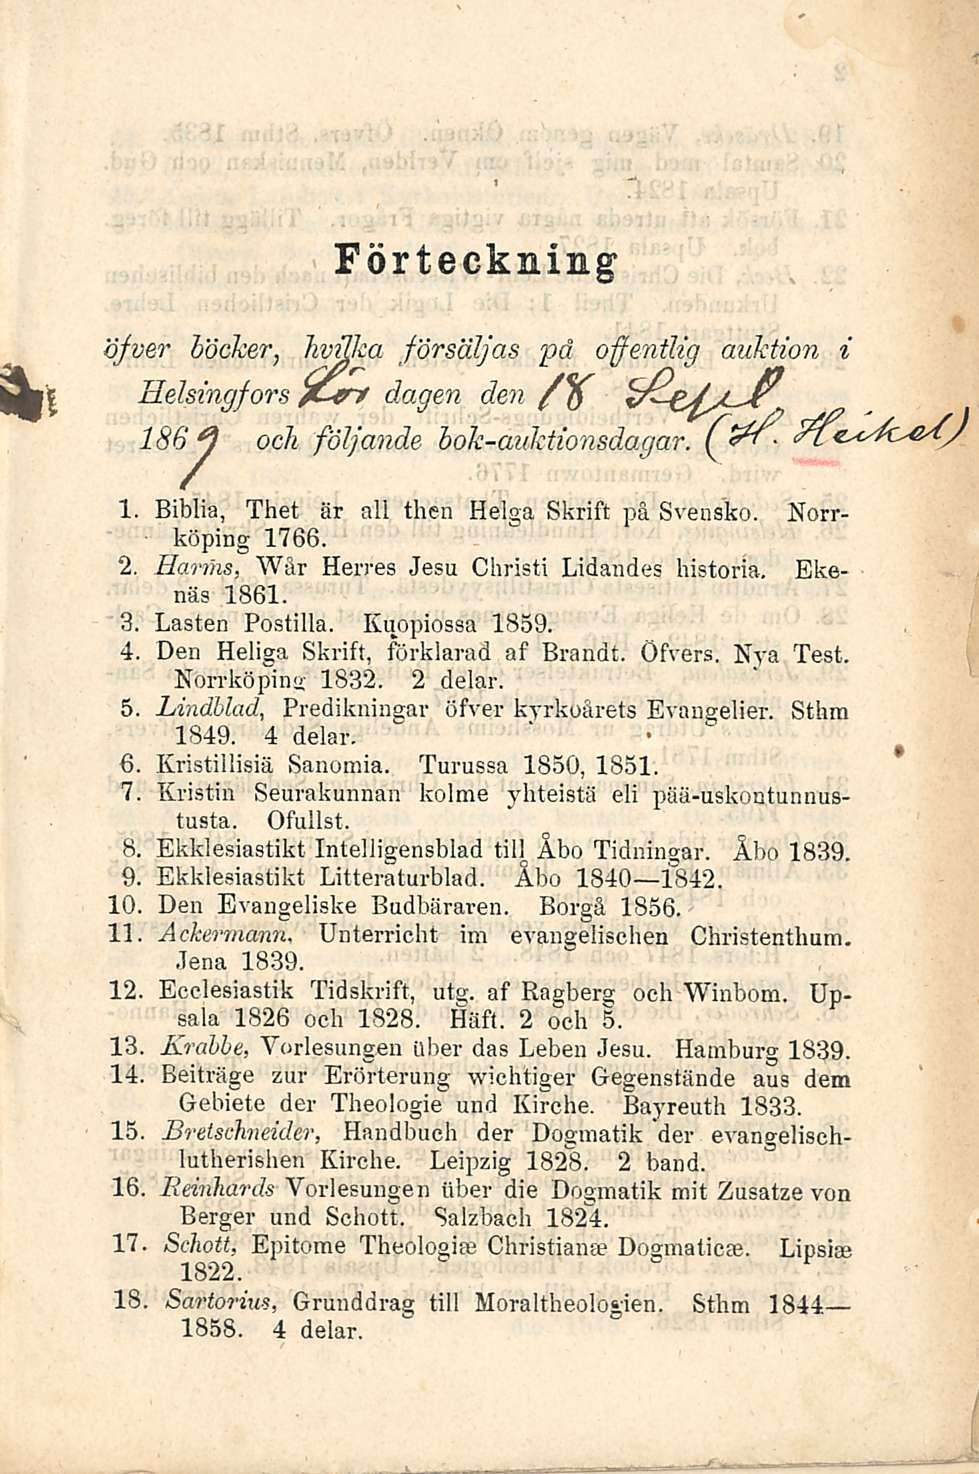 Förteckning
öfver böcker, hvilka försäljas på offentlig auktion i
Helsingfors Lör dagen den 18 Sept
1869 och följande bok-auktionsdagar. (H. Heikel)
1. Biblia, Thet är all then Helga Skrift på Svensko. Norr-
köping 1766.
2. Harms, Wår Herres Jesu Christi Lidandes historia. Eke-
näs 1861.
3. Lasten Postilla. Kuopiossa 1859.
4. Den Heliga Skrift, förklarad af Brandt. Öfvers. Nya Test.
Norrköping 1832. 2 delar.
5. Lindblad, Predikningar öfver kyrkoårets Evangelier. Sthm
1849. 4 delar.
6. Kristillisiä Sanomia. Turussa 1850, 1851.
7. Kristin Seurakunnan kolme yhteistä eli pää-uskontunnus-
tusta. Ofullst.
8. Ekklesiastikt Intelligensblad till Åbo Tidningar. Åbo 1839.
9. Ekklesiastikt Litteraturblad. Åbo 1840—1842.
10. Den Evangeliske Budbäraren. Borgå 1856.
11. Ackermann, Unterricht im evangelischen Christenthum.
Jena 1839.
12. Ecclesiastik Tidskrift, utg. af Ragberg och Winbom. Up-
sala 1826 och 1828. Häft. 2 och 5.
13. Krabbe, Vorlesungen über das Leben Jesu. Hamburg 1839.
14. Beiträge zur Erörterung wichtiger Gegenstände aus dem
Gebiete der Theologie und Kirche. Bayreuth 1833.
15. Bretschneider, Handbuch der Dogmatik der evangelisch-
lutherishen Kirche. Leipzig 1828. 2 band.
16. Reinhards Vorlesungen über die Dogmatik mit Zusatze von
Berger und Schott. Salzbach 1824.
17. Schott, Epitome Theologiæ Christianæ Dogmaticæ. Lipsiæ
1822.
18. Sartorius, Grunddrag till Moraltheologien. Sthm 1844—
1858. 4 delar.